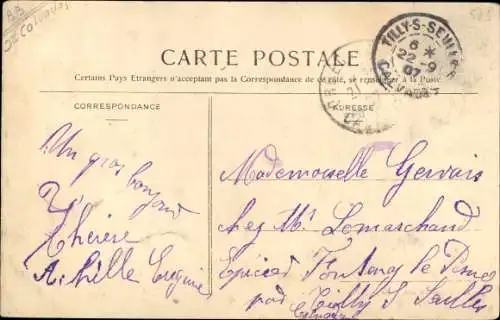 Calvados
TILLY-S-SEULLES
6 *
22-9
07
CALVADOS
CARTE POSTALE
Certains Pays Etrangers n'acceptant pas la Correspondance de ce côté, se renseigner à la Poste
CORRESPONDANCE
ADRESSE
Un gros bonjour
Thérèse
Achille
Mademoiselle Gervais
chez Mr Lemarchand
Epicier Fontenay le Pesnel
par Tilly S Seulles
Calvados